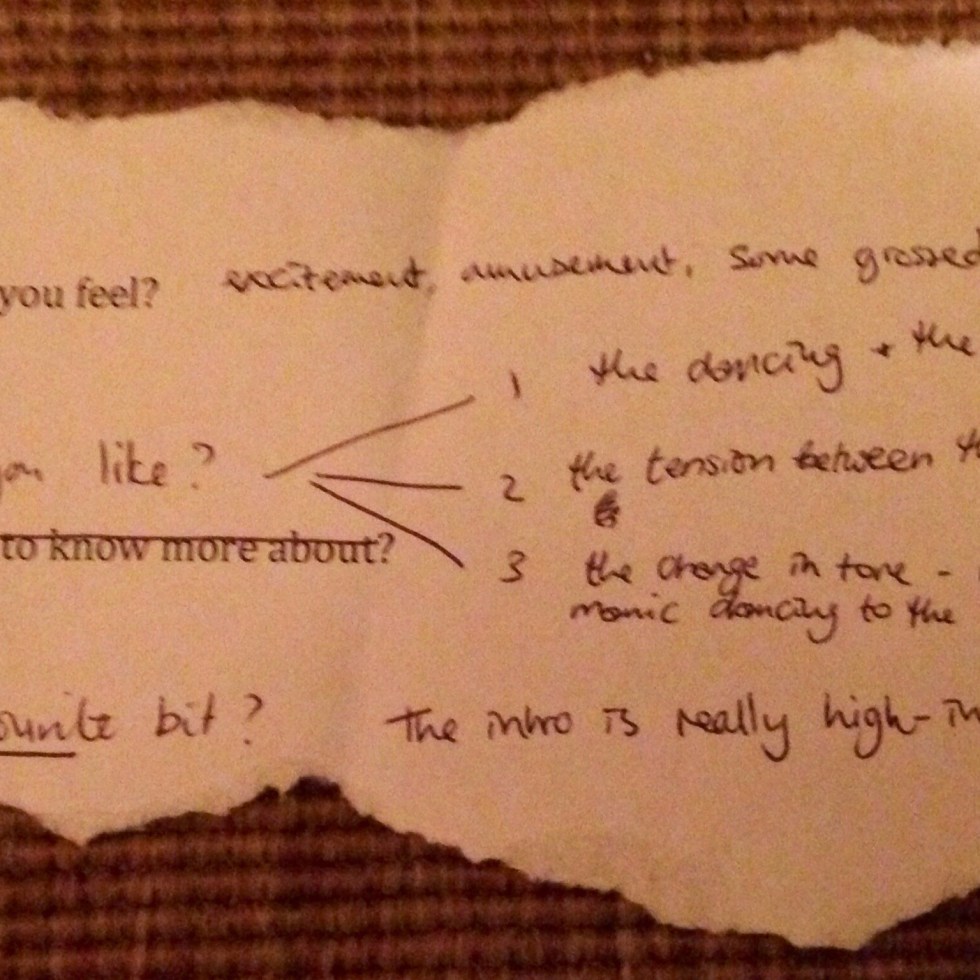 you feel? excitement, amusement, some grossed
1 the dancing + the
you like?
2 the tension between th
to know more about?
3 the change in tone -
manic dancing to the
ourite bit? The intro is really high-in